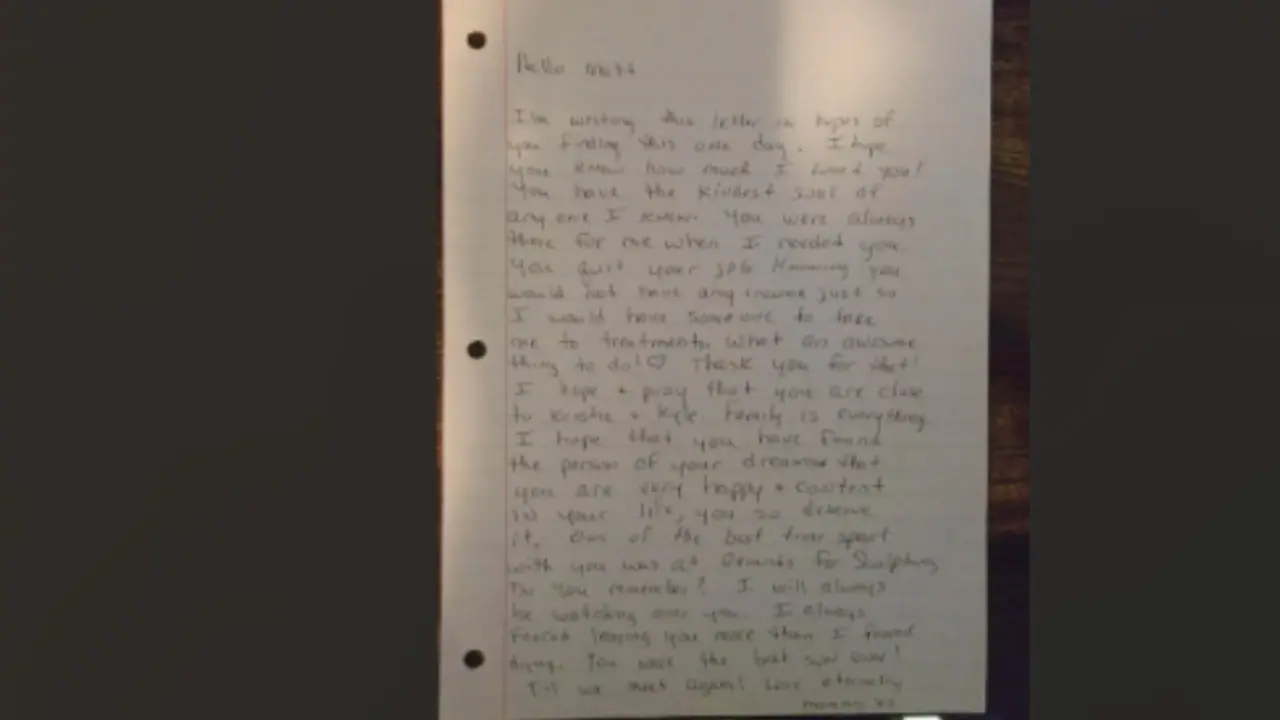 Hello Matt
I'm writing this letter in hopes of
you finding this one day. I hope
you know how much I loved you!
You have the kindest soul of
anyone I know. You were always
there for me when I needed you
You quit your job knowing you
would not have any income just so
I would have someone to take
me to treatments what an awesome
thing to do! ♡ Thank you for that!
I hope + pray that you are close
to + Kyle. Family is everything
I hope that you have found
the person of your dreams that
you are very happy + content
in your life, you so deserve
it. One of the best times spent
with you was at Grounds for Sculpture
Do you remember? I will always
be watching over you. I always
Feared leaving you more than I feared
dying. You were the best son ever!
Til we meet again! Love eternally